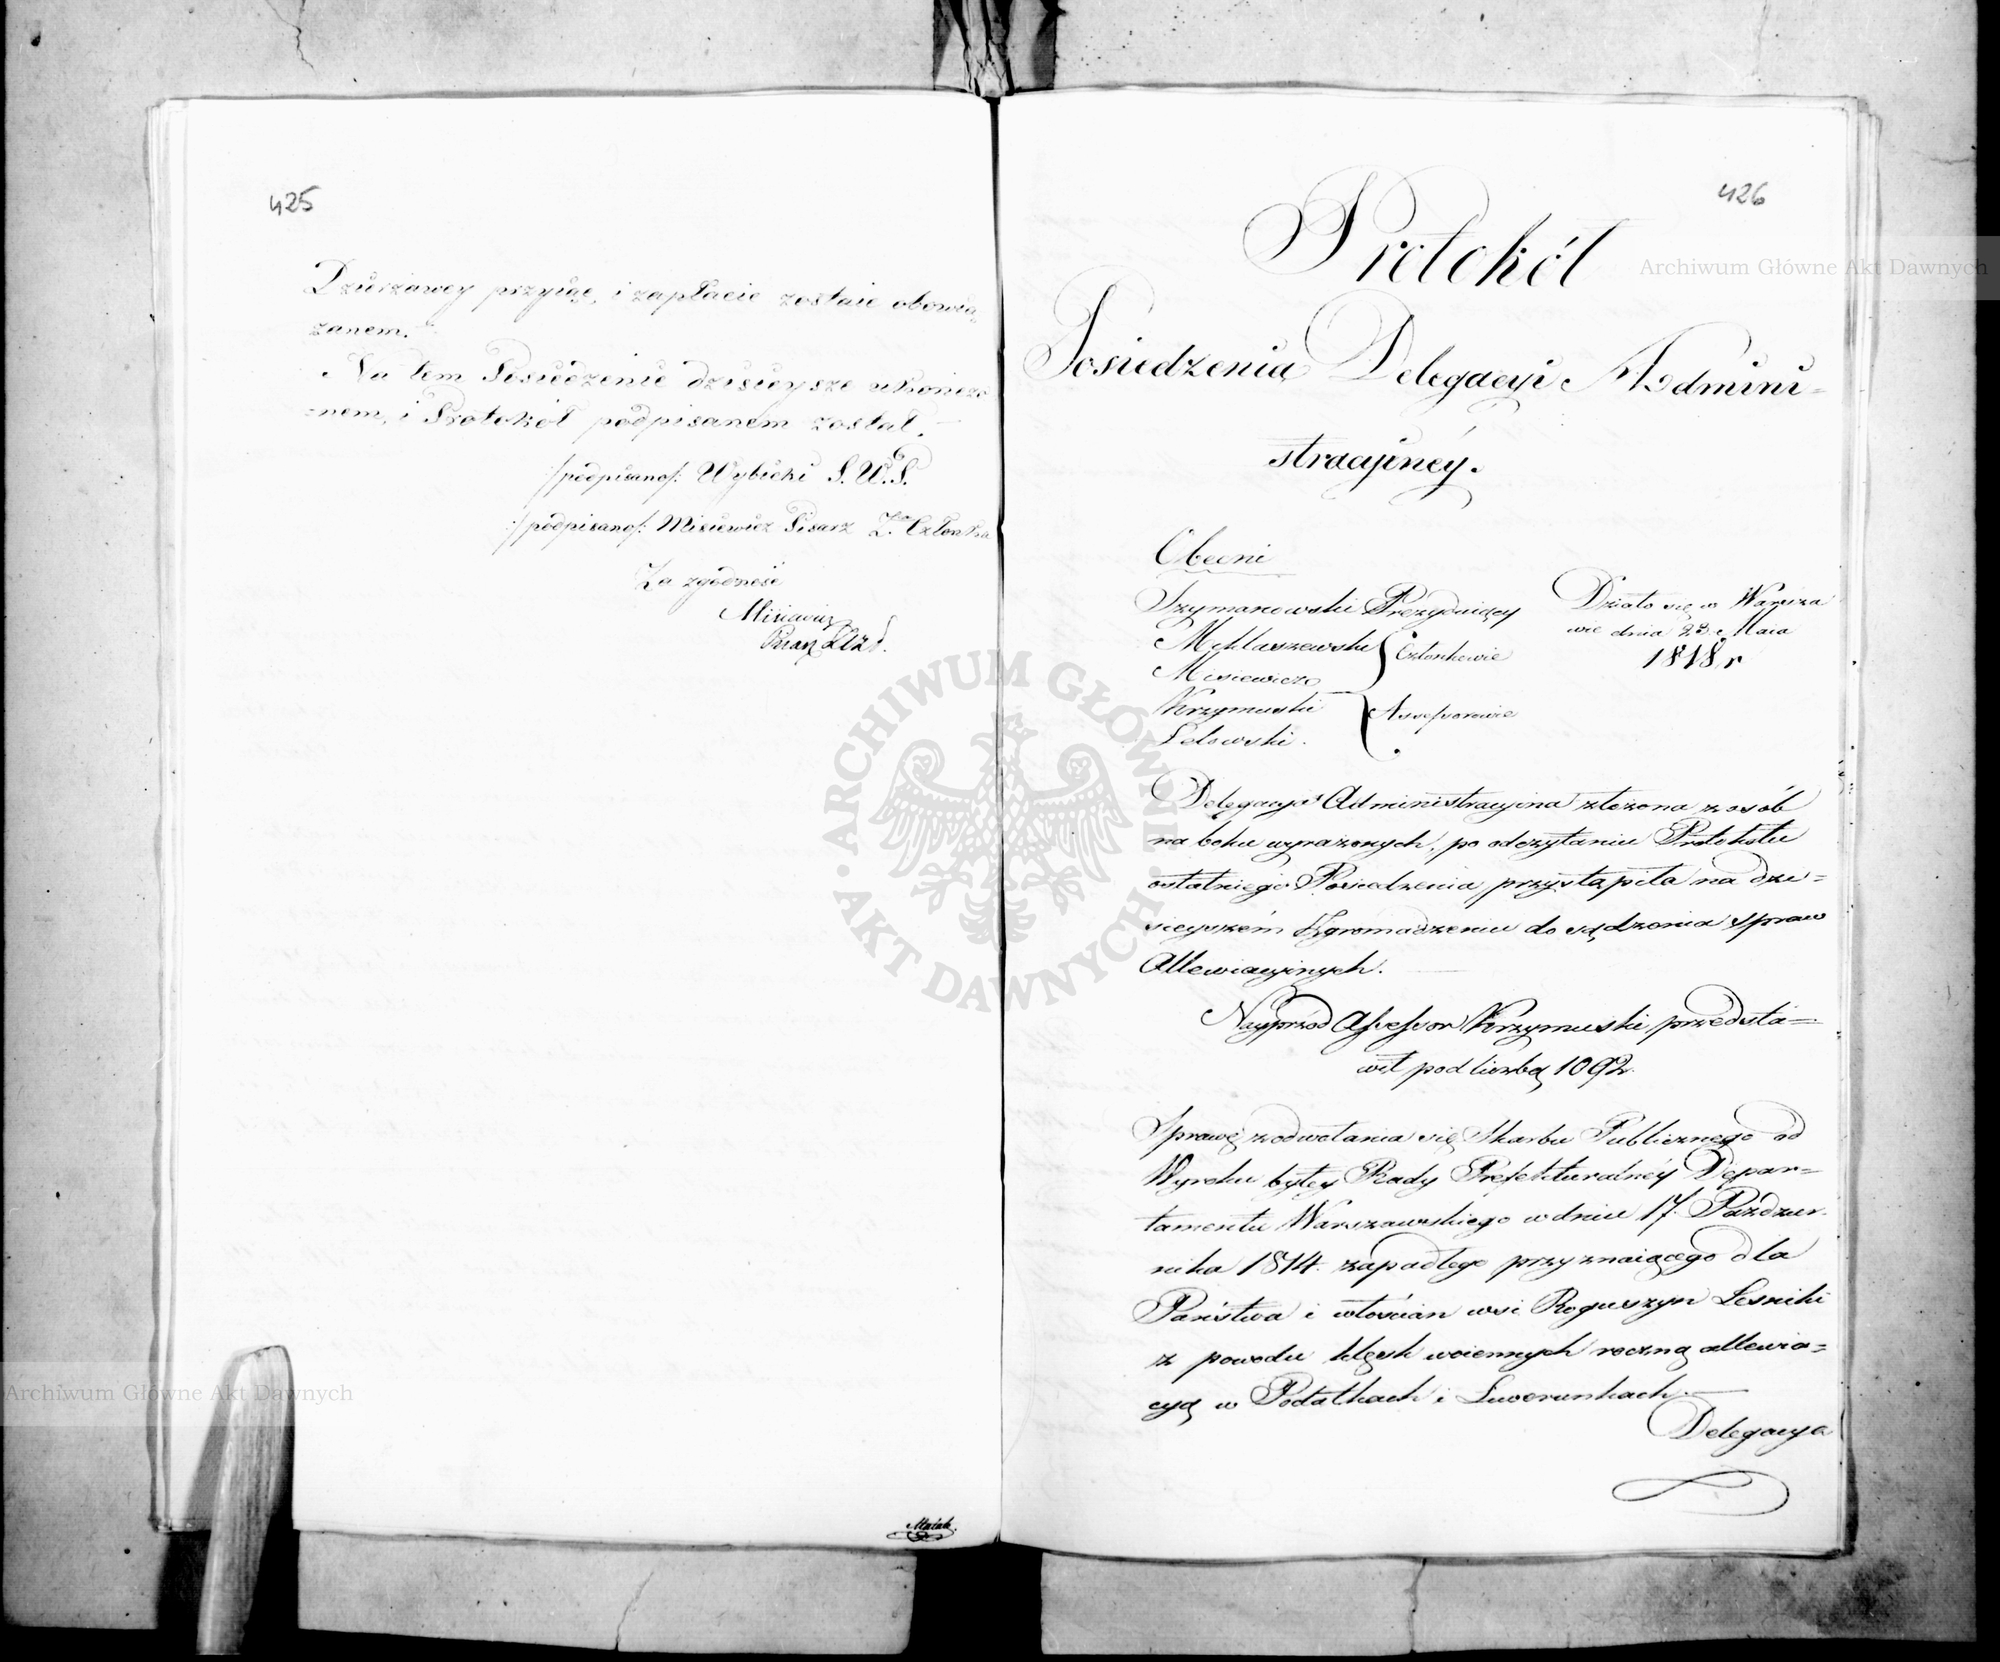 425
Dzierżawcy przyiąć, i zapłacić zostaie obowią
zanem.
Na tem Posiedzenie dzisieysze ukończo
nem, i Protokół podpisanem został.
/podpisano/: Wybicki S.W.P.
/podpisano/: Misiewicz Pisarz Z. Członka
Za zgodność
Misiewicz
426
Protokół
Posiedzenia Delegacyi Admini=
stracyiney.
Obecni
Szymanowski Prezyduiący
Miklaszewski
Misiewicz
Członkowie
Krzymuski
Lelowski.
Assessorowie
Działo się w Warsza
wie dnia 23. Maia
1818 r
Delegacya Administracyina złożona z osób
na boku wyrażonych, po odczytaniu Protokółu
ostatniego Posiedzenia, przystąpiła na dzi=
sieyszém Zgromadzeniu do sądzenia spraw
Allewiacyinych.
Nayprzód Assessor Krzymuski przedsta=
wił pod liczbą 1092.
Sprawę z odwołania się Skarbu Publicznego od
Wyroku byłey Rady Prefekturalnéy Depar=
tamentu Warszawskiego w dniu 17. Paździer=
nika 1814. zapadłego przyznaiącego dla
Państwa i włościan wsi Roguszyn Leśniki
z powodu klęsk woiennych roczną allewia=
cyą w Podatkach i Liwerunkach.
Delegacya
Archiwum Główne Akt Dawnych
Archiwum Główne Akt Dawnych
ARCHIWUM GŁÓWNE AKT DAWNYCH